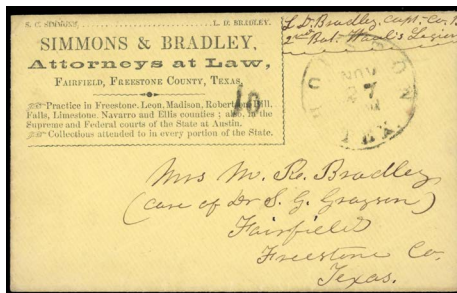 S. C. SIMMONS, L. D. BRADLEY.
SIMMONS & BRADLEY,
Attorneys at Law,
FAIRFIELD, FREESTONE COUNTY, TEXAS,
Practice in Freestone, Leon, Madison, Robertson, Hill,
Falls, Limestone, Navarro and Ellis counties; also, in the
Supreme and Federal courts of the State at Austin.
Collections attended to in every portion of the State.
L. D. Bradley, Capt. Co.
2nd Bat. Waul's Legion
10
HOUSTON
NOV
27
TEX.
Mrs M. Re. Bradley
(care of Dr S. G. Grayson)
Fairfield
Freestone Co.
Texas.